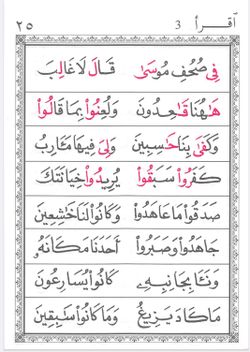 ٢٥ 3 اَقرأ
فِى صُحُفِ مُوسَىٰ قَالَ لَاغَالِبَ
هَـٰهُنَا قَـٰعِدُونَ وَلُعِنُوا۟ بِمَا قَالُوا۟
وَكَفَىٰ بِنَا حَـٰسِبِينَ وَلِىَ فِيهَا مَـَٔارِبُ
كَفَرُوا۟ سَبَقُوا۟ يُرِيدُوا۟ خِيَانَتَكَ
صَدَقُوا۟ مَا عَاهَدُوا۟ وَكَانُوا۟ لَنَا خَـٰشِعِينَ
جَاهَدُوا۟ وَصَبَرُوا۟ أَحَدَنَا مَكَانَهُۥ
وَنَـَٔا بِجَانِبِهِۦ كَانُوا۟ يُسَارِعُونَ
مَا كَادَ يَزِيغُ وَمَا كَانُوا۟ سَـٰبِقِينَ